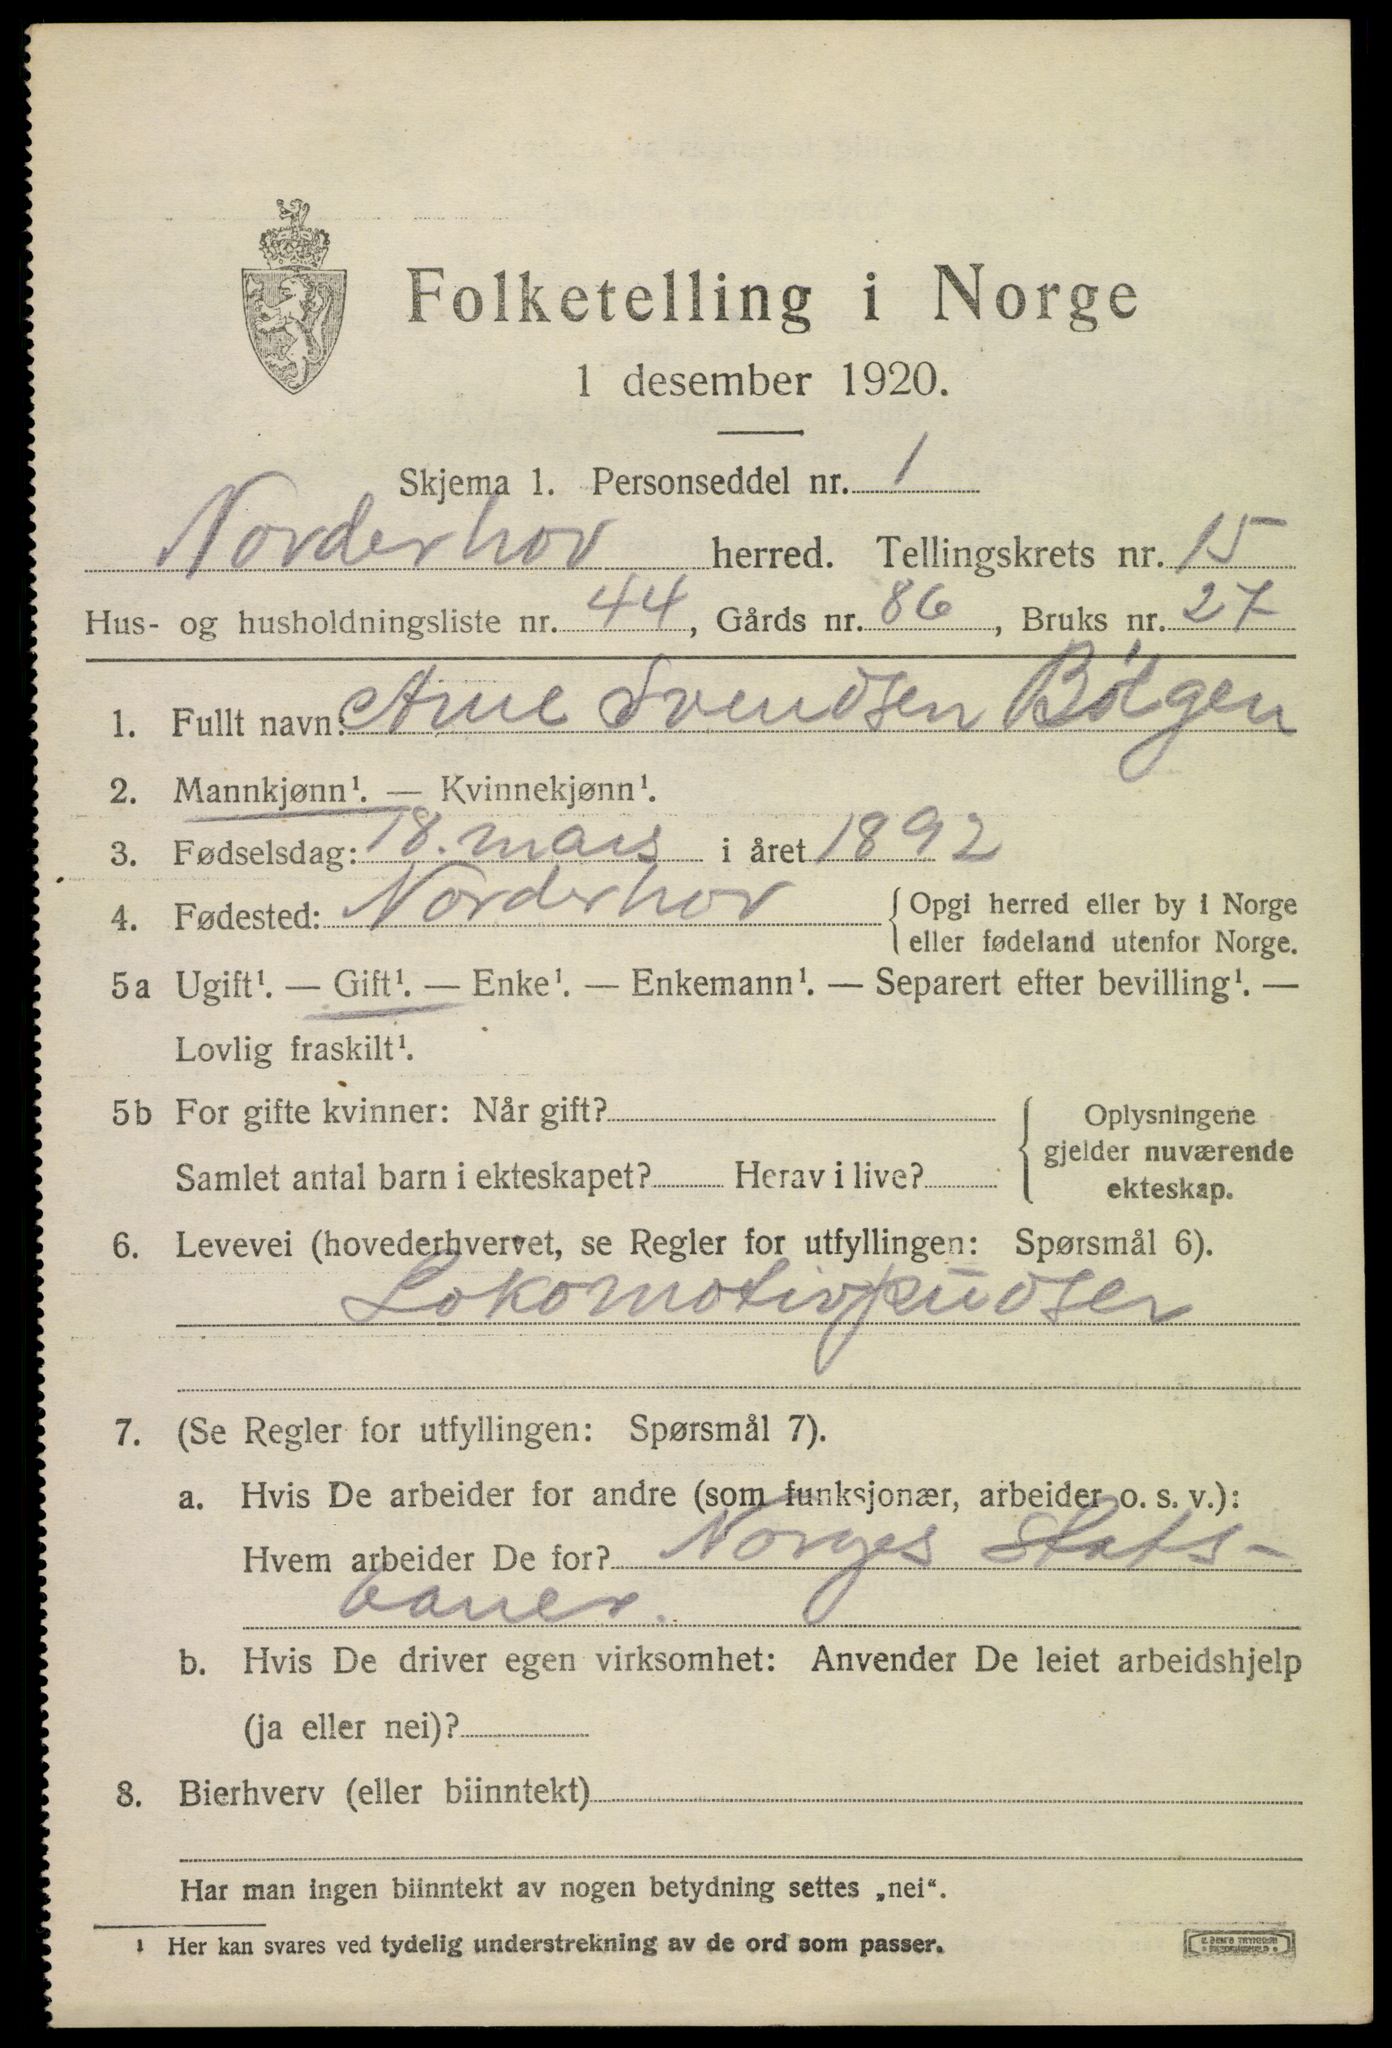 Folketelling i Norge
1 desember 1920.
Skjema 1. Personseddel nr. 1
Norderhov herred. Tellingskrets nr. 15
Hus- og husholdningsliste nr. 44, Gårds nr. 86, Bruks nr. 27
1. Fullt navn: Arne Svendsen Bölgen
2. Mannkjønn¹. — Kvinnekjønn¹.
3. Fødselsdag: 18. mars i året 1892
4. Fødested: Norderhov { Opgi herred eller by i Norge
eller fødeland utenfor Norge.
5a Ugift¹. — Gift¹. — Enke¹. — Enkemann¹. — Separert efter bevilling¹. —
Lovlig fraskilt¹.
5b For gifte kvinner: Når gift? { Oplysningene
gjelder nuværende
Samlet antal barn i ekteskapet? Herav i live? ekteskap.
6. Levevei (hovederhvervet, se Regler for utfyllingen: Spørsmål 6).
Lokomotivpudser
7. (Se Regler for utfyllingen: Spørsmål 7).
a. Hvis De arbeider for andre (som funksjonær, arbeider o. s. v.):
Hvem arbeider De for? Norges Stats-
baner.
b. Hvis De driver egen virksomhet: Anvender De leiet arbeidshjelp
(ja eller nei)?
8. Bierhverv (eller biinntekt)
Har man ingen biinntekt av nogen betydning settes „nei“.
¹ Her kan svares ved tydelig understrekning av de ord som passer.